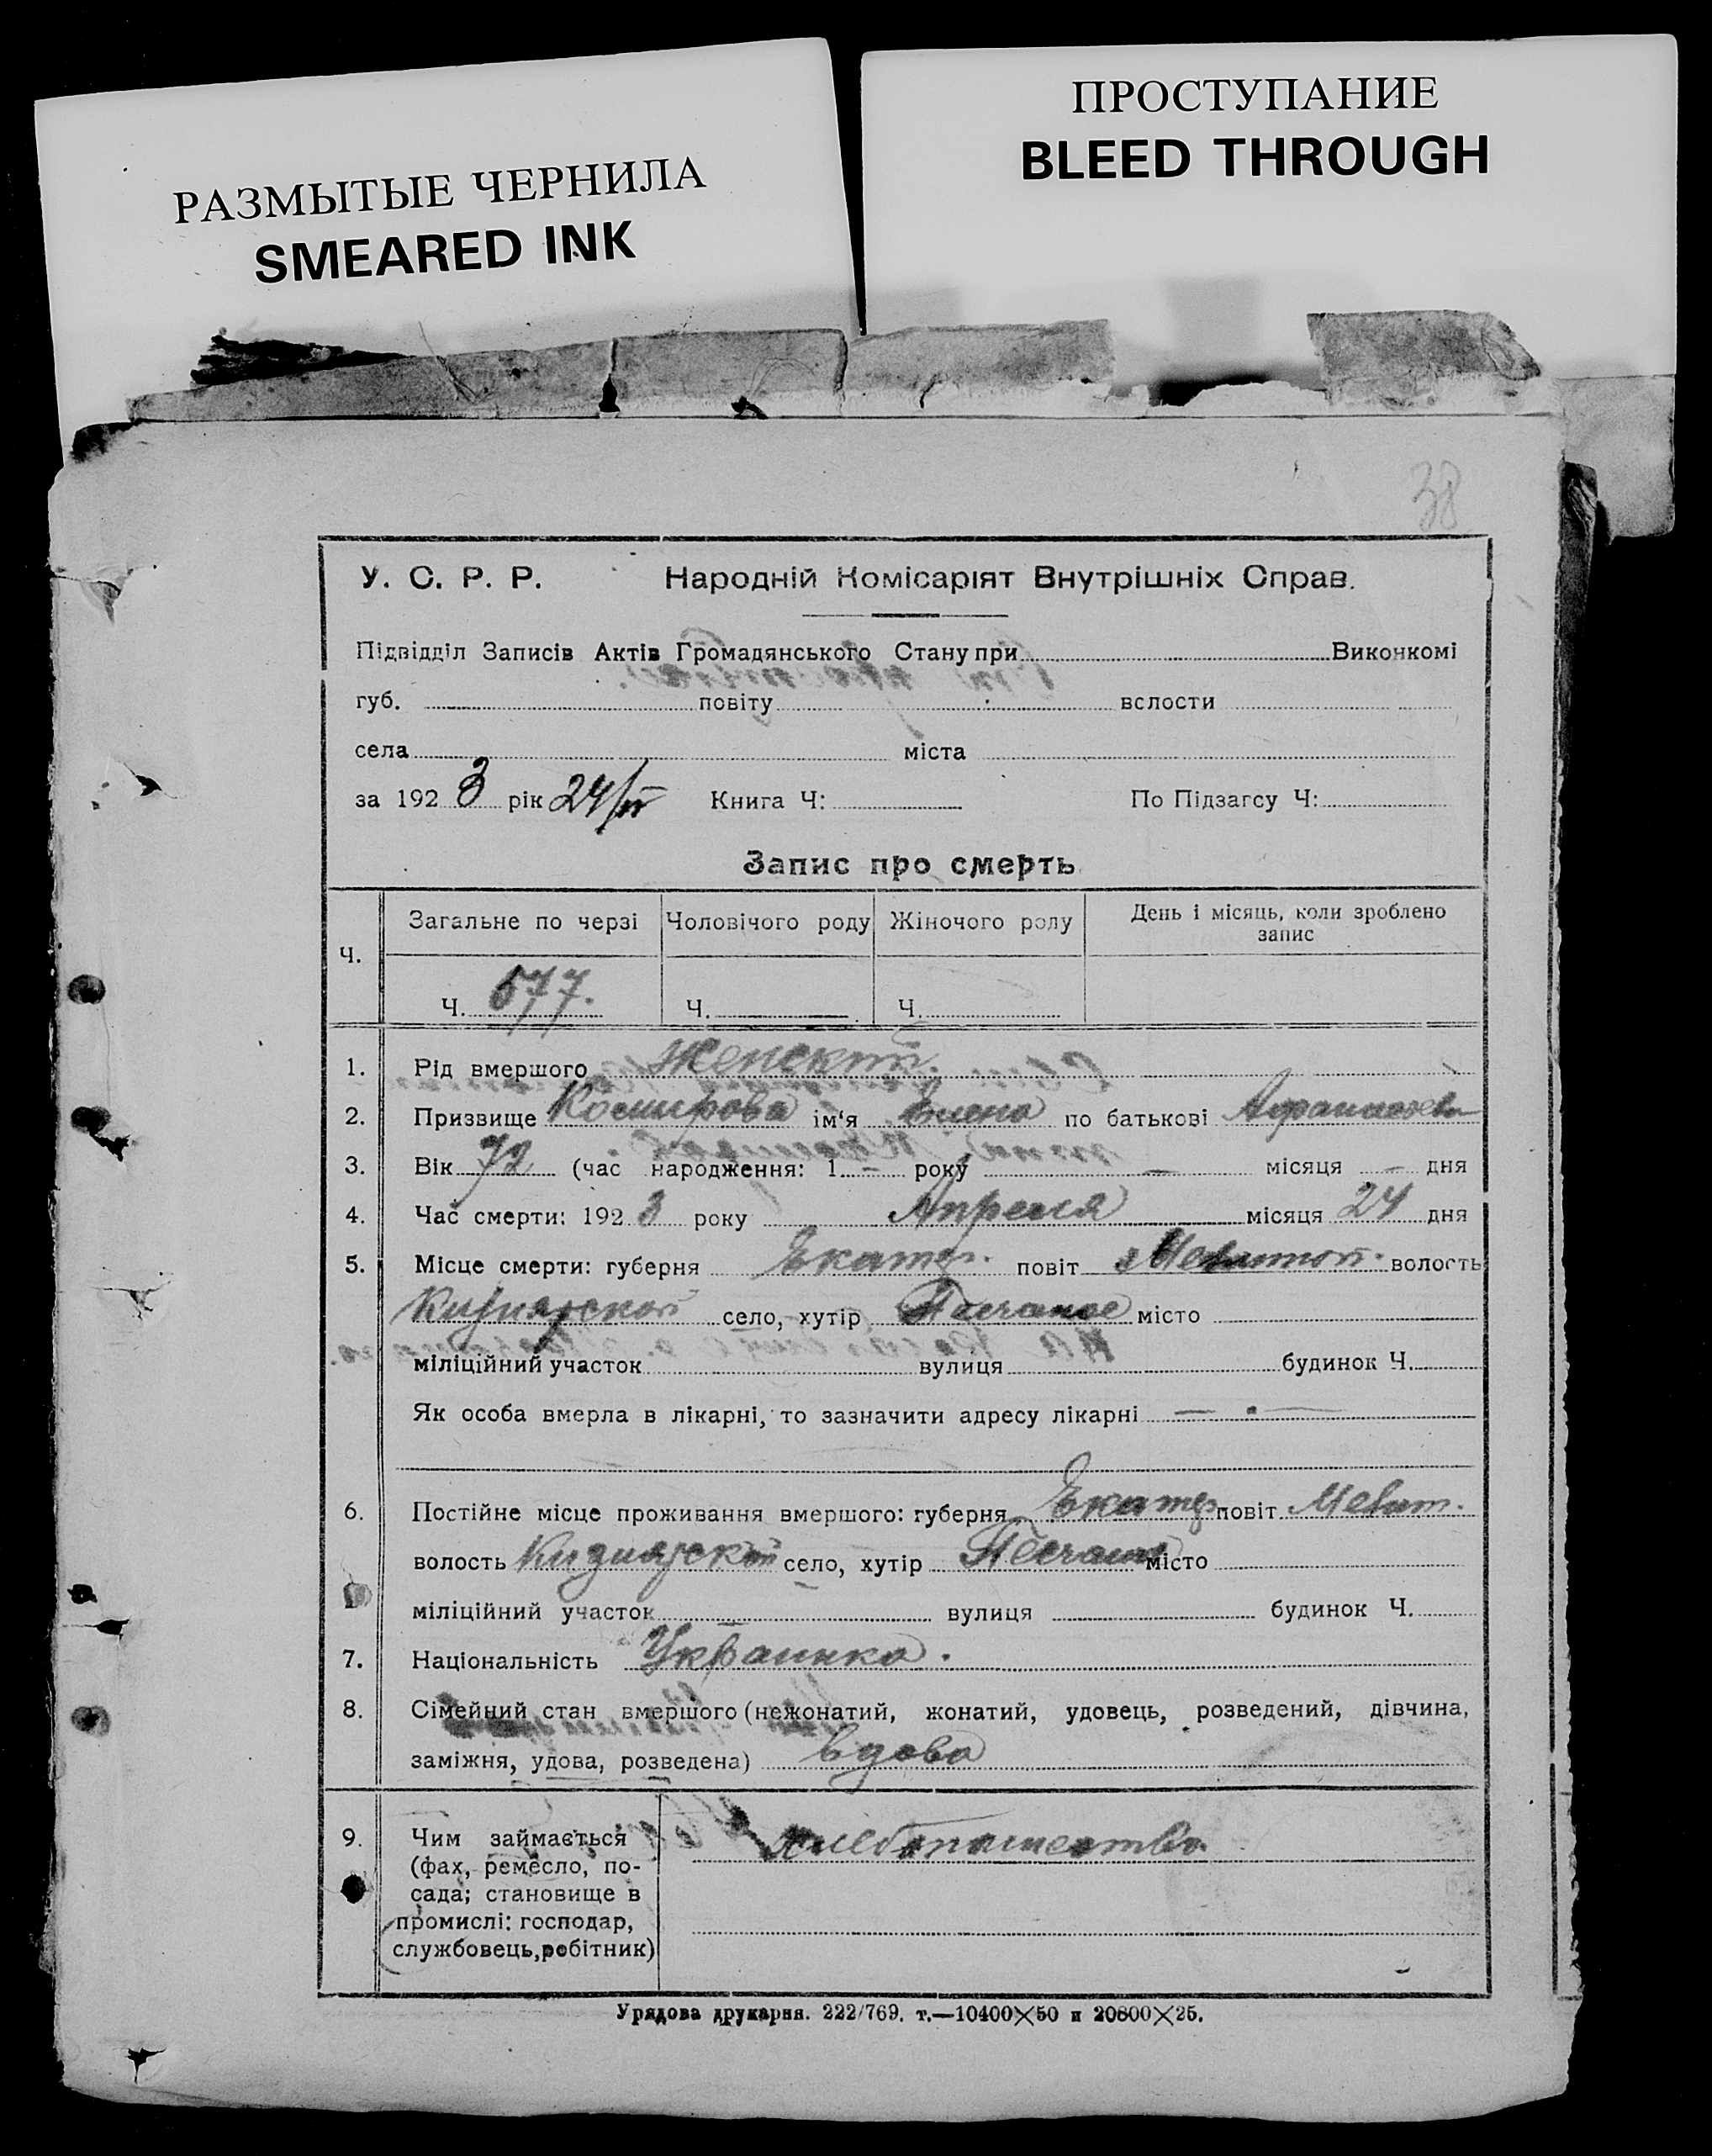 РАЗМЫТЫЕ ЧЕРНИЛА
SMEARED INK
ПРОСТУПАНИЕ
BLEED THROUGH
38
У. С. Р. Р. Народній Комісаріят Внутрішніх Справ.
Підвідділ Записів Актів Громадянського Стану при Виконкомі
губ. повіту вслости
села міста
за 1923 рік 24/IV Книга Ч: По Підзагсу Ч:
Запис про смерть
Ч. Загальне по черзі Чоловічого роду Жіночого роду День і місяць, коли зроблено запис
Ч. 577. Ч. Ч.
1. Рід вмершого Женский.
2. Призвище ім‘я Елена по батькові
3. Вік 72 (час народження: 1 – року – місяця – дня
4. Час смерти: 1923 року Апреля місяця 24 дня
5. Місце смерти: губерня Екатер. повіт волость
Кизиярской село, хутір Песчаное місто
міліційний участок вулиця будинок Ч.
Як особа вмерла в лікарні, то зазначити адресу лікарні —
6. Постійне місце проживання вмершого: губерня Екатер повіт Мелит.
волость Кизиярской село, хутір Песчаное місто
міліційний участок вулиця будинок Ч.
7. Національність Украинка.
8. Сімейний стан вмершого (нежонатий, жонатий, удовець, розведений, дівчина,
заміжня, удова, розведена) вдова
9. Чим займається хлебопашество
(фах, ремесло, по-
сада; становище в
промислі: господар,
службовець, робітник)
Урядова друкарня. 222/769. т.—10400×50 и 20800×25.